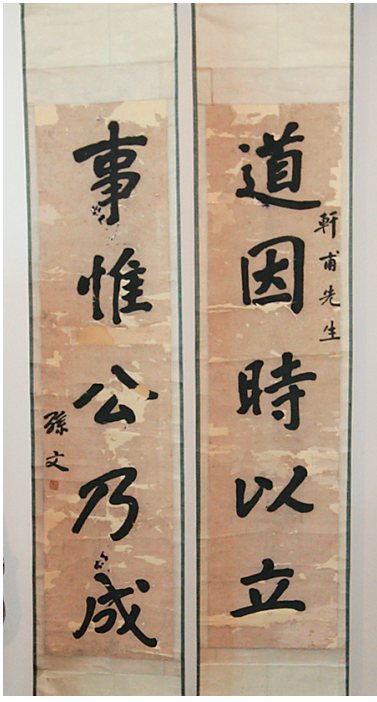 道因時以立
軒甫先生
事惟公乃成
孫文